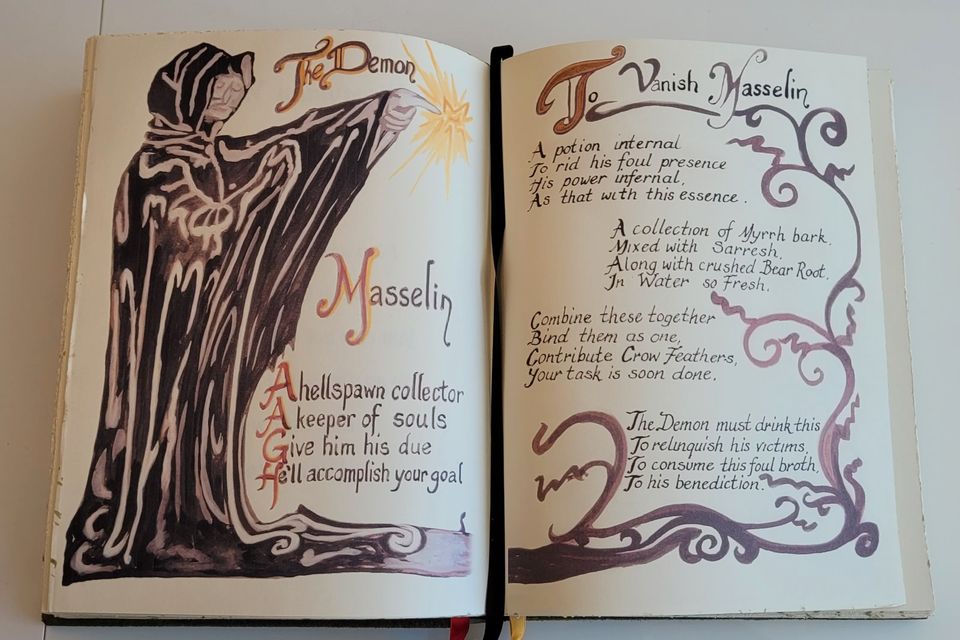 The Demon
Masselin
A hellspawn collector
A keeper of souls
Give him his due
He'll accomplish your goal
To Vanish Masselin
A potion internal
To rid his foul presence
His power infernal,
As that with this essence.
A collection of Myrrh bark,
Mixed with Sarresh,
Along with crushed Bear Root,
In Water so Fresh.
Combine these together
Bind them as one,
Contribute Crow Feathers,
Your task is soon done.
The Demon must drink this
To relinquish his victims,
To consume this foul broth,
To his benediction.